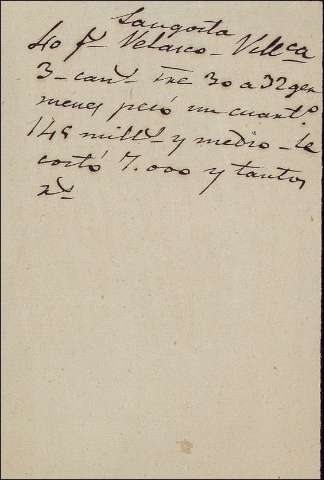 Langosta
40 f.s Velasco - Vill.ca
3 - cant.s tne 30 a 32 ger
menes pesó un cuart.o
148 mill.s y medio - le
costó 7.000 y tantos
r.s